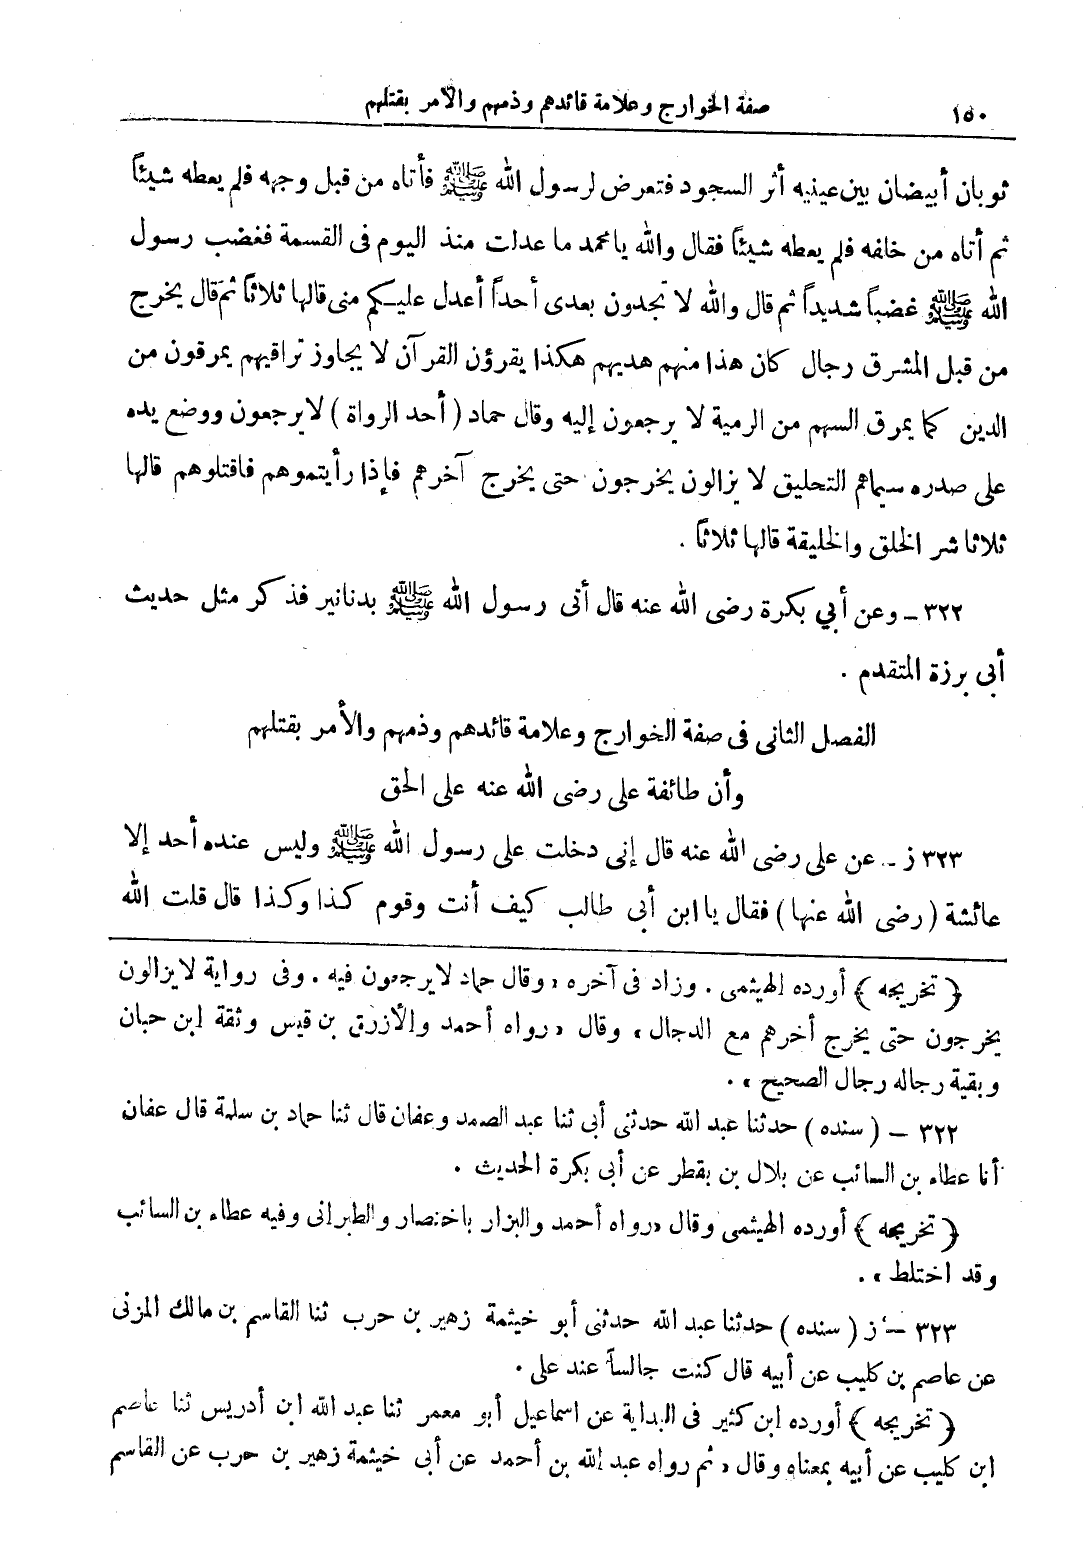 ١٥٠ صفة الخوارج وعلامة قائدهم وذمهم والأمر بقتلهم
ثوبان أبيضان بين عينيه أثر السجود فتعرض لرسول الله ﷺ فأتاه من قبل وجهه فلم يعطه شيئاً
ثم أتاه من خلفه فلم يعطه شيئاً فقال والله يا محمد ما عدلت منذ اليوم فى القسمة فغضب رسول
الله ﷺ غضباً شديداً ثم قال والله لا تجدون بعدى أحداً أعدل عليكم منى قالها ثلاثاً ثم قال يخرج
من قبل المشرق رجال كان هذا منهم هديهم هكذا يقرؤن القرآن لا يجاوز تراقيهم يمرقون من
الدين كما يمرق السهم من الرمية لا يرجعون إليه وقال حماد ( أحد الرواة ) لا يرجعون ووضع يده
على صدره سيماهم التحليق لا يزالون يخرجون حتى يخرج آخرهم فإذا رأيتموهم فاقتلوهم قالها
ثلاثا شر الخلق والخليقة قالها ثلاثاً .
٣٢٢ ـ وعن أبي بكرة رضى الله عنه قال أتى رسول الله ﷺ بدنانير فذكر مثل حديث
أبى برزة المتقدم .
الفصل الثانى فى صفة الخوارج وعلامة قائدهم وذمهم والأمر بقتلهم
وأن طائفة على رضى الله عنه على الحق
٣٢٣ ز ـ عن على رضى الله عنه قال إنى دخلت على رسول الله ﷺ وليس عنده أحد إلا
عائشة ( رضى الله عنها ) فقال يا ابن أبى طالب كيف أنت وقوم كذا وكذا قال قلت الله
﴿ تخريجه ﴾ أورده الهيثمى . وزاد فى آخره « وقال حماد لا يرجعون فيه . وفى رواية لا يزالون
يخرجون حتى يخرج أخرهم مع الدجال » وقال « رواه أحمد والأزرق بن قيس وثقة ابن حبان
وبقية رجاله رجال الصحيح » .
٣٢٢ ـ ( سنده ) حدثنا عبد الله حدثنى أبى ثنا عبد الصمد وعفان قال ثنا حماد بن سلمة قال عفان
أنا عطاء بن السائب عن بلال بن بقطر عن أبى بكرة الحديث .
﴿ تخريجه ﴾ أورده الهيثمى وقال « رواه أحمد والبزار باختصار والطبرانى وفيه عطاء بن السائب
وقد اختلط » .
٣٢٣ ـ ز ( سنده ) حدثنا عبد الله حدثنى أبو خيثمة زهير بن حرب ثنا القاسم بن مالك المزنى
عن عاصم بن كليب عن أبيه قال كنت جالساً عند على .
﴿ تخريجه ﴾ أورده ابن كثير فى البداية عن اسماعيل أبو معمر ثنا عبد الله ابن أدريس ثنا عاصم
ابن كليب عن أبيه بمعناه وقال « ثم رواه عبد الله بن أحمد عن أبى خيثمة زهير بن حرب عن القاسم